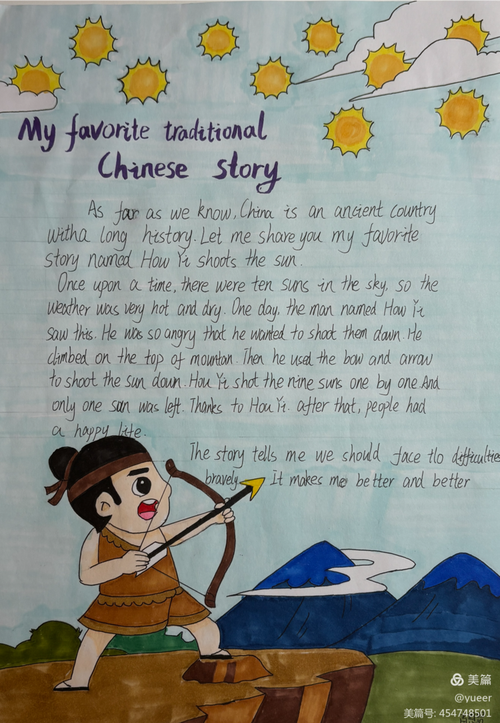 My favorite traditional
Chinese story
As far as we know, China is an ancient country
with a long history. Let me share you my favorite
story named How Yi shoots the sun.
Once upon a time, there were ten suns in the sky, so the
weather was very hot and dry. One day, the man named Hou Yi
saw this. He was so angry that he wanted to shoot them down. He
climbed on the top of mountain. Then he used the bow and arrow
to shoot the sun down. Hou Yi shot the nine suns one by one. And
only one sun was left. Thanks to Hou Yi. after that, people had
a happy life.
The story tells me we should face the difficulties
bravely. It makes me better and better
美篇
@yueer
美篇号: 454748501